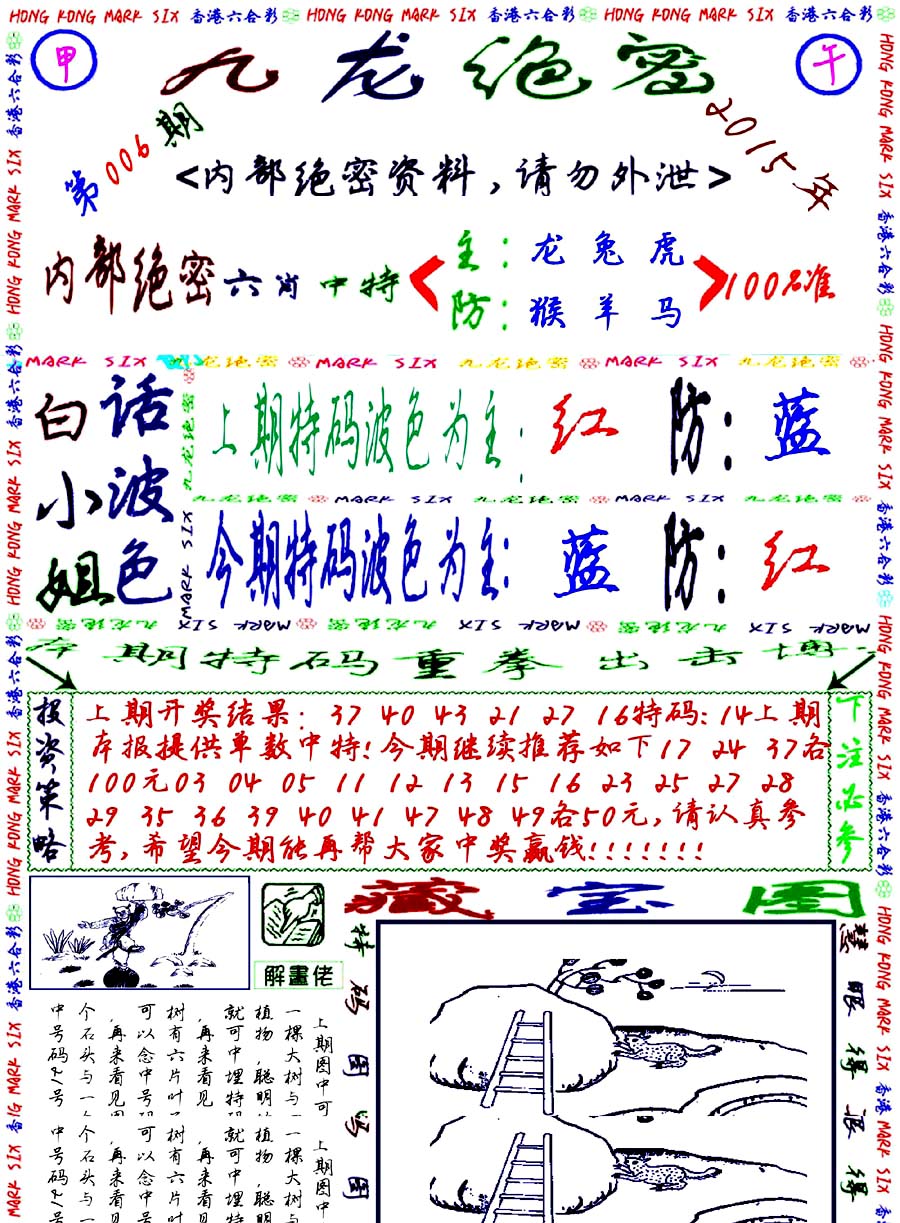 HONG KONG MARK SIX 香港六合彩 HONG KONG MARK SIX 香港六合彩 HONG KONG MARK SIX 香港六合彩
甲 九龙绝密 午
第006期 2015年
<内部绝密资料,请勿外泄>
内部绝密六肖中特
主:龙兔虎
防:猴羊马
100%准
MARK SIX 九龙绝密 MARK SIX 九龙绝密 MARK SIX 九龙绝密
白小姐
话波色
上期特码波色为主:红 防:蓝
九龙绝密 MARK SIX 九龙绝密 MARK SIX 九龙绝密
今期特码波色为主:蓝 防:红
九龙绝密 MARK SIX 九龙绝密 MARK SIX 九龙绝密 MARK SIX
本期特码重拳出击
投资策略
上期开奖结果:37 40 43 21 27 16特码:14上期
本报提供单数中特!今期继续推荐如下17 24 37各
100元03 04 05 11 12 13 15 16 23 25 27 28
29 35 36 39 40 41 47 48 49各50元,请认真参
考,希望今期能再帮大家中奖赢钱!!!!!!!
下注必参
解畫佬
藏宝图
特码图
慧眼得
上期图中可
一棵大树与
植物,聪明
就可中埋特
,再来看见
树有六片叶
可以念中号
,再来看见
个石头与一
中号码22号
上期图中
一棵大树与
植物,聪
就可中埋特
,再来看
树有六片叶
可以念中号
,再来看
个石头与一
中号码22号